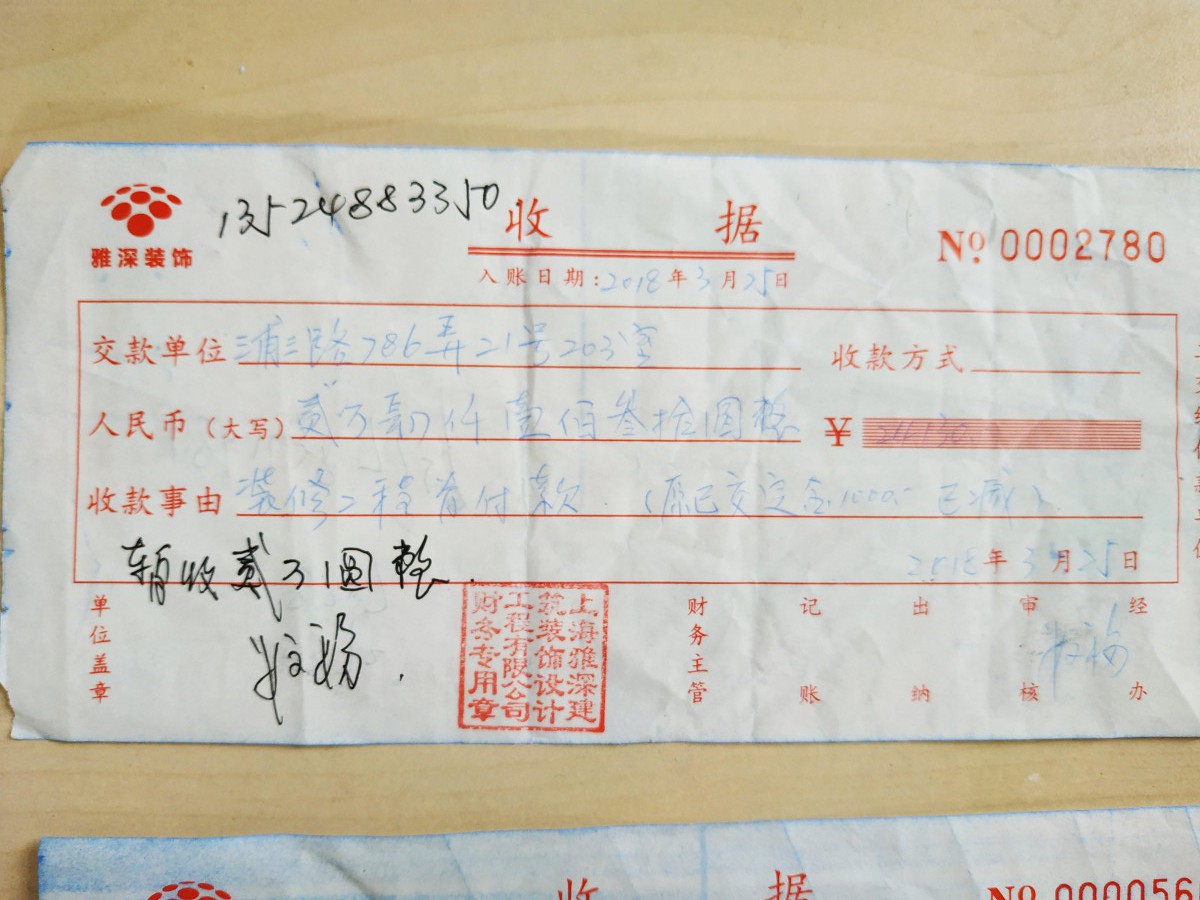 13524883350
收 据
雅深装饰
№ 0002780
入账日期:2018年3月25日
交款单位 三浦三路786弄21号203室
收款方式
人民币(大写) 贰万 仟壹佰叁拾圆整 ¥
收款事由 装修工程首付款.(原已交定金1000.-已减)
2018年3月25日
暂收贰万圆整.
单位盖章
上海雅深建筑装饰设计工程有限公司财务专用章
财务主管
记账
出纳
审核
经办
收 据
№ 000056